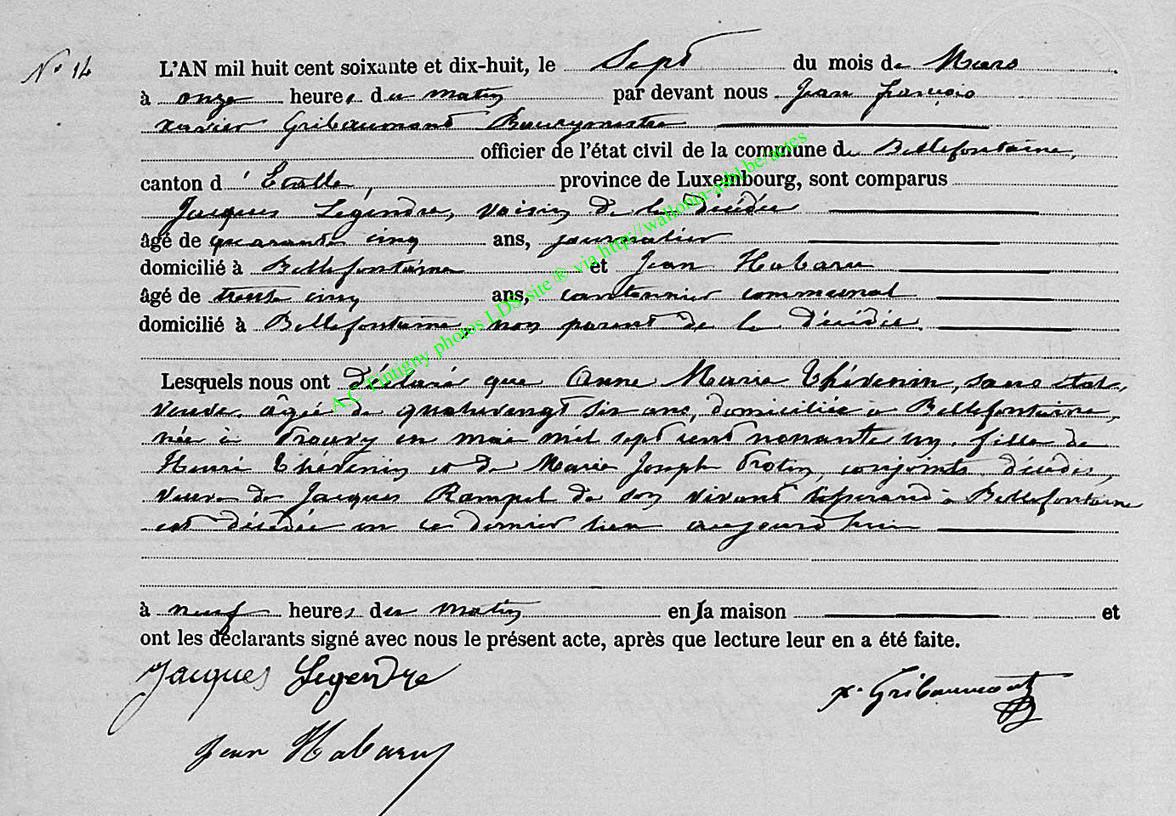 N° 14
L'AN mil huit cent soixante et dix-huit, le Sept du mois de Mars
à onze heures du matin par devant nous Jean françois
xavier Gribaumont Bourgmestre
officier de l'état civil de la commune de Bellefontaine,
canton d'Etalle, province de Luxembourg, sont comparus
Jacques Legendre, voisin de la décédée
âgé de quarante cinq ans, journalier
domicilié à Bellefontaine et Jean Habaru
âgé de trente cinq ans, cantonnier communal
domicilié à Bellefontaine, non parent de la décédée.
Lesquels nous ont déclaré que Anne Marie Thévenin, sans état,
veuve, âgée de quatrevingt six ans, domiciliée à Bellefontaine,
née à en mai mil sept cent nonante un, fille de
Henri Thévenin et de Marie Joseph conjoints décédés,
veuve de Jacques Rampel de son vivant à Bellefontaine
est décédée en ce dernier lieu aujourd'hui
à neuf heures du matin en la maison et
ont les déclarants signé avec nous le présent acte, après que lecture leur en a été faite.
Jacques Legendre
x. Gribaumont
Jean Habaru
A.C. Tintigny photos LDS site ® via http://wallonia-asbl.be/actes